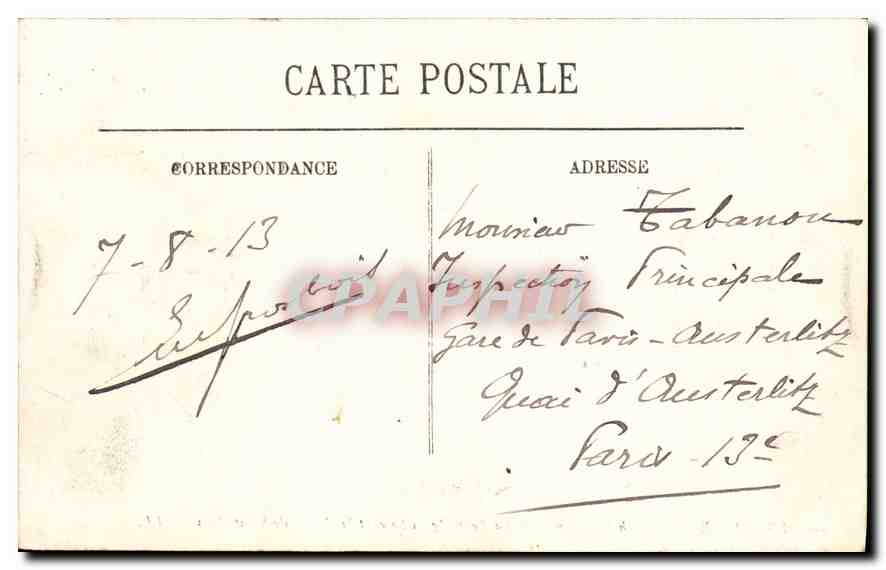 CARTE POSTALE
CORRESPONDANCE
ADRESSE
7-8-13
Monsieur Tabanou
Inspection Principale
Gare de Paris-Austerlitz
Quai d'Austerlitz
Paris-13e
CPAPHIL